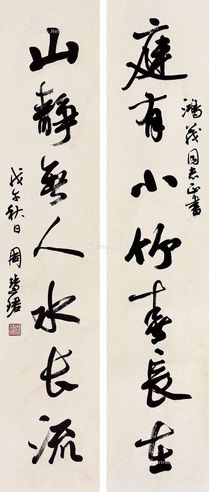 庭有小竹春長在
鴻義同志正書
山靜無人水長流
戊午秋日 周慧珺